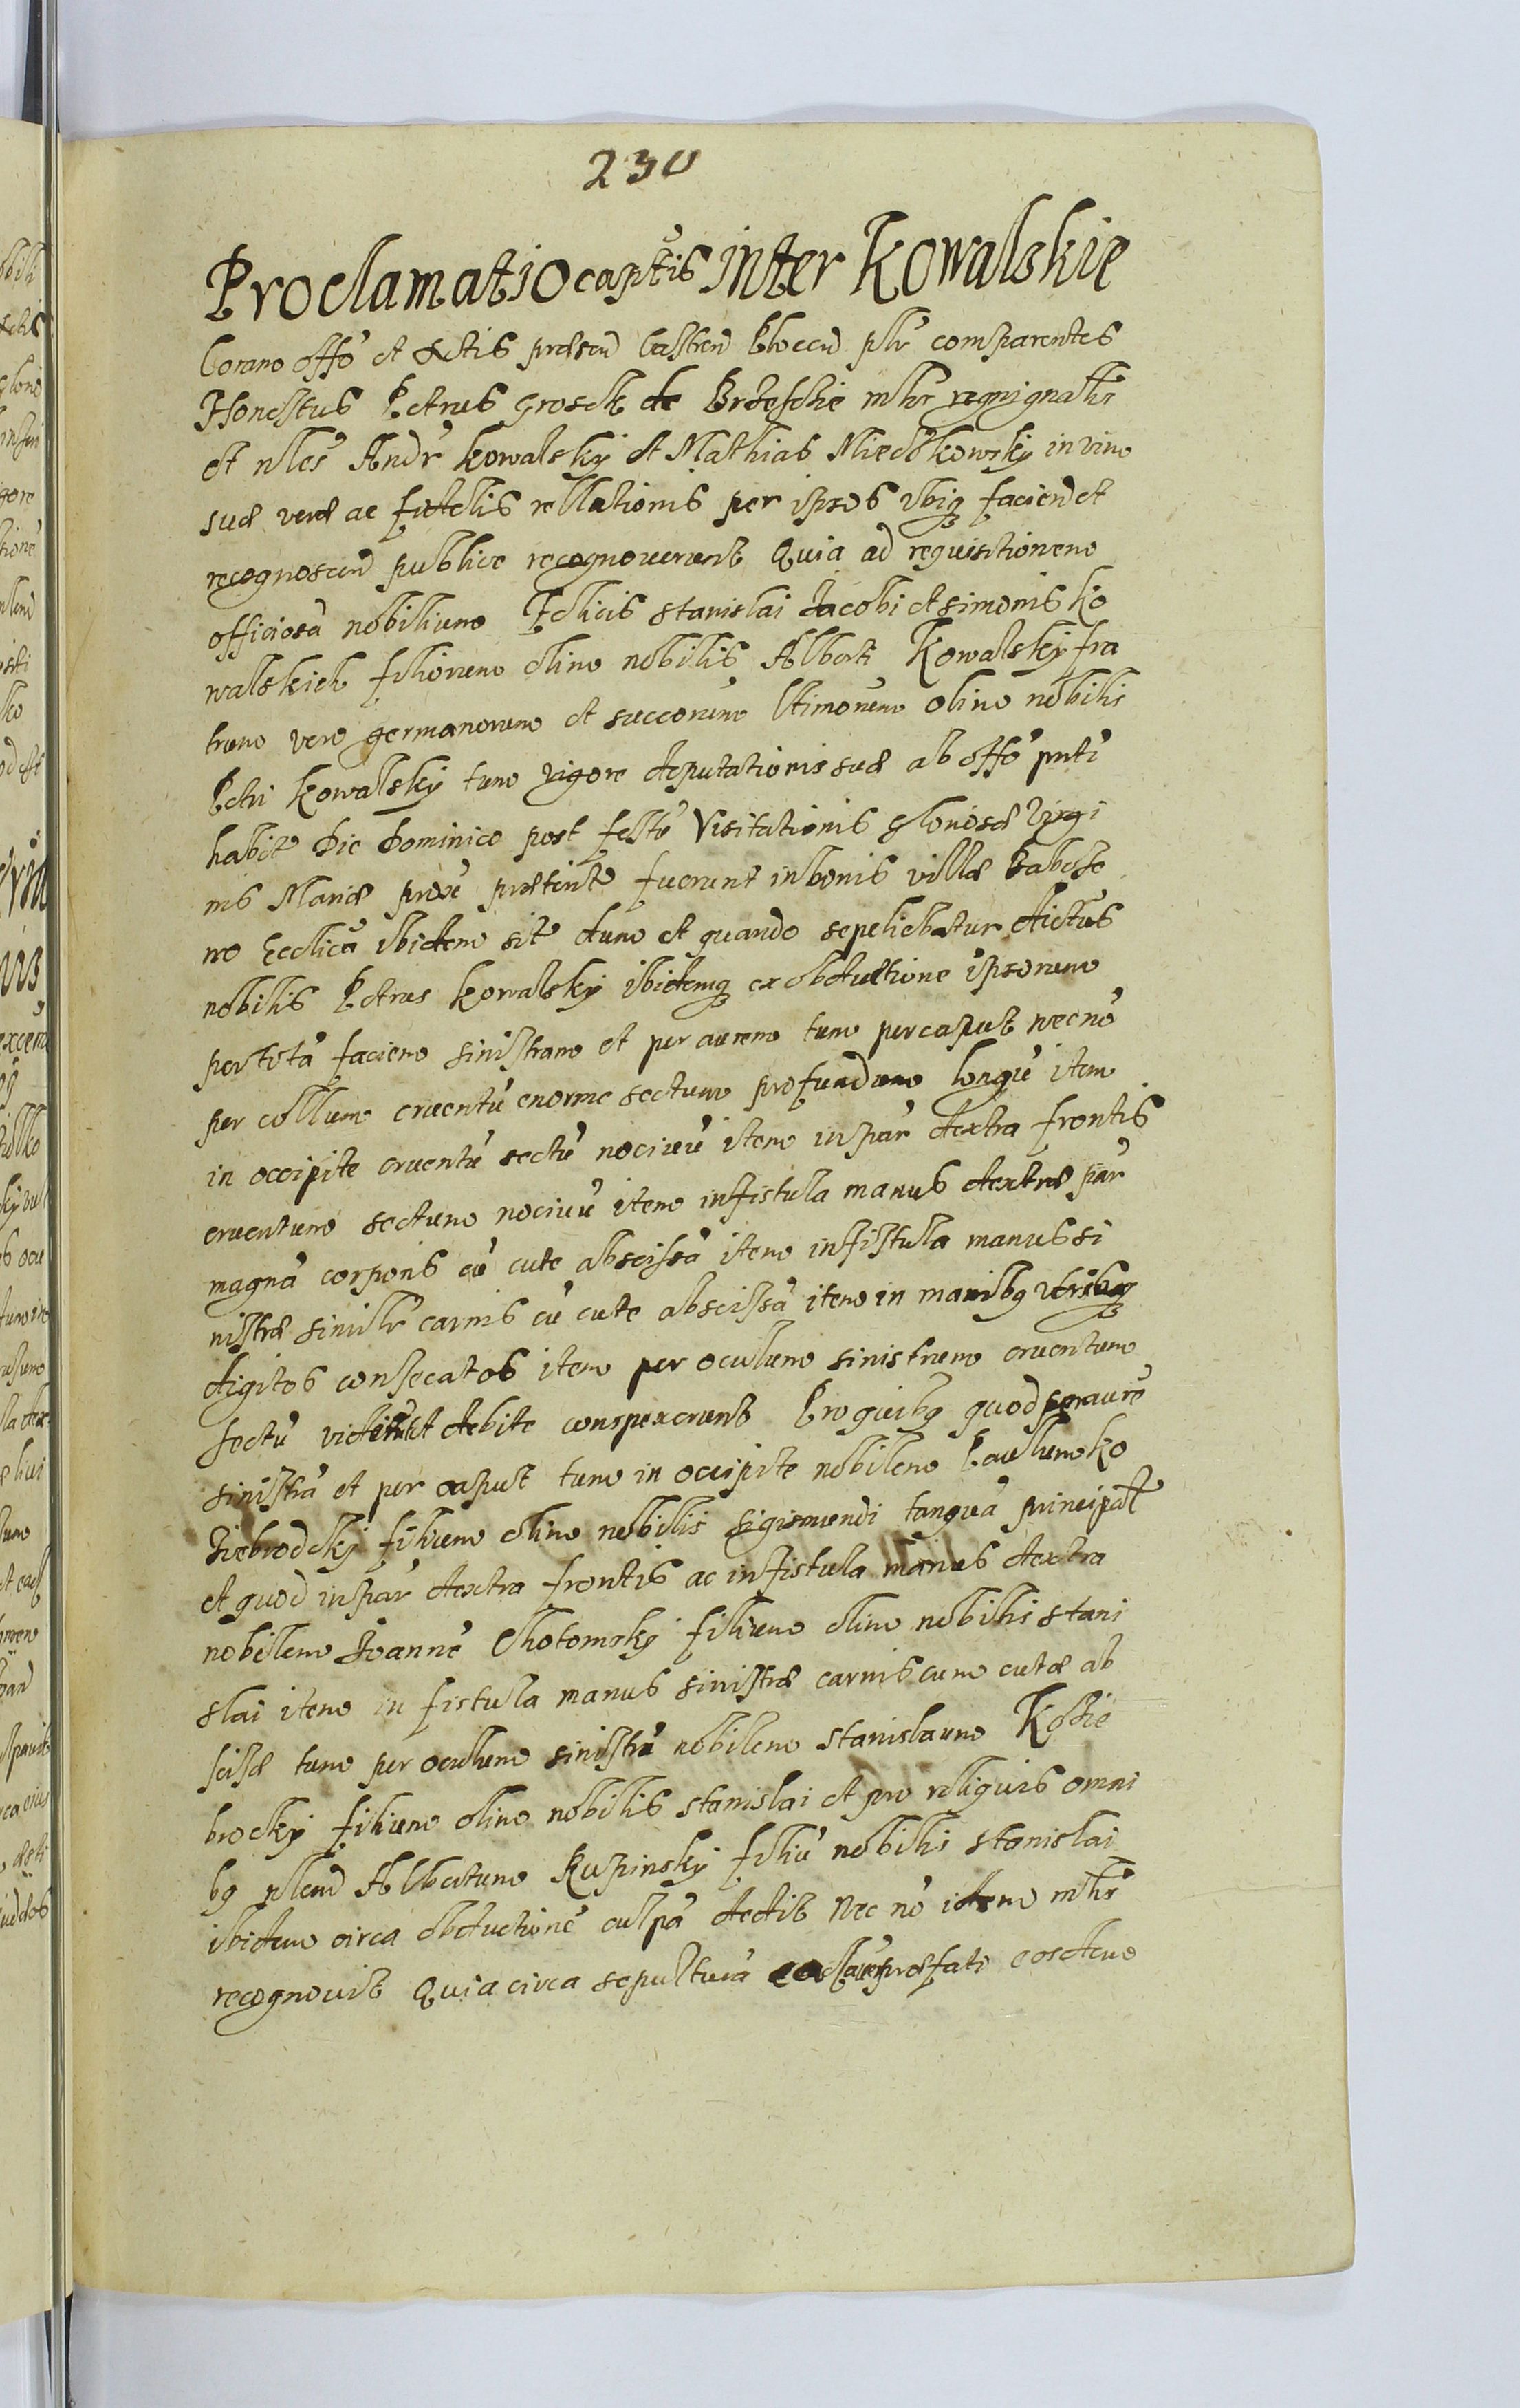 230
Proclamatio captis inter Kowalskie
Coram offo et Actis præsend Castren Plocen plr comparentes
Honestus Petrus Grosek de Brzeschie mlr regni gnalis
et nles Andr Kowalsky et Mathias Miedzkowsky in vim
suæ veræ ac fidelis rellationis per ipsos ibiq faciend et
recognoscend publice recognoverunt Quia ad requisitionem
officiosã nobilium Felicis Stanislai Jacobi et Simonis Ko
walskich filiorum olim nobilis Alberti Kowalsky fra
trum vero germanorum et succorum ltimorum olim nobilis
Petri Kowalsky tum vigore deputationis suæ ab offo pnti
habite Die Dominico post festũ Visitationis gloriosæ Virgi
nis Mariæ proxẽ præterite fuerunt in bonis villæ
no Ecclica ibidem site dum et quando sepeliebatur dictus
nobilis Petrus Kowalsky ibidemq ex obductione ipsorum
per totã faciem sinistram et per aurem tum per caput necnõ
per collum cruentũ enorme sectum profundum longũ item
in occipite cruentũ sectũ nocivũ item in par dextra frontis
cruentum sectum nocivũ item in fistula manus dextræ par
magnã corporis cũ cute abscissã item in fistula manus si
nistræ similr carnis cũ cute abscissã item in manibq utrisq
digitos consecatos item per oculum sinistrum cruentum
sectũ viderunt et debite conspexerunt Pro quibq quod per aurẽ
sinistrã et per caput tum in occipite nobilem Paulum Ko
ziebrodzky filium olim nobilis Sigismundi tanquã principalẽ
et quod in par dextra frontis ac in fistula manus dextra
nobilem Joannẽ Chotomsky filium olim nobilis Stani
slai item in fistula manus sinistræ carnis cum cutæ ab
scisæ tum per oculum sinistrũ nobilem Stanislaum Kozie
brocky filium olim nobilis Stanislai et pro reliquis omni
bq Albertum Rupinsky filiũ nobilis Stanislai
ibidem circa obductionẽ culpã dedit Nec nõ idem mlr
recognovit Quia circa sepulturã præfati eosdem